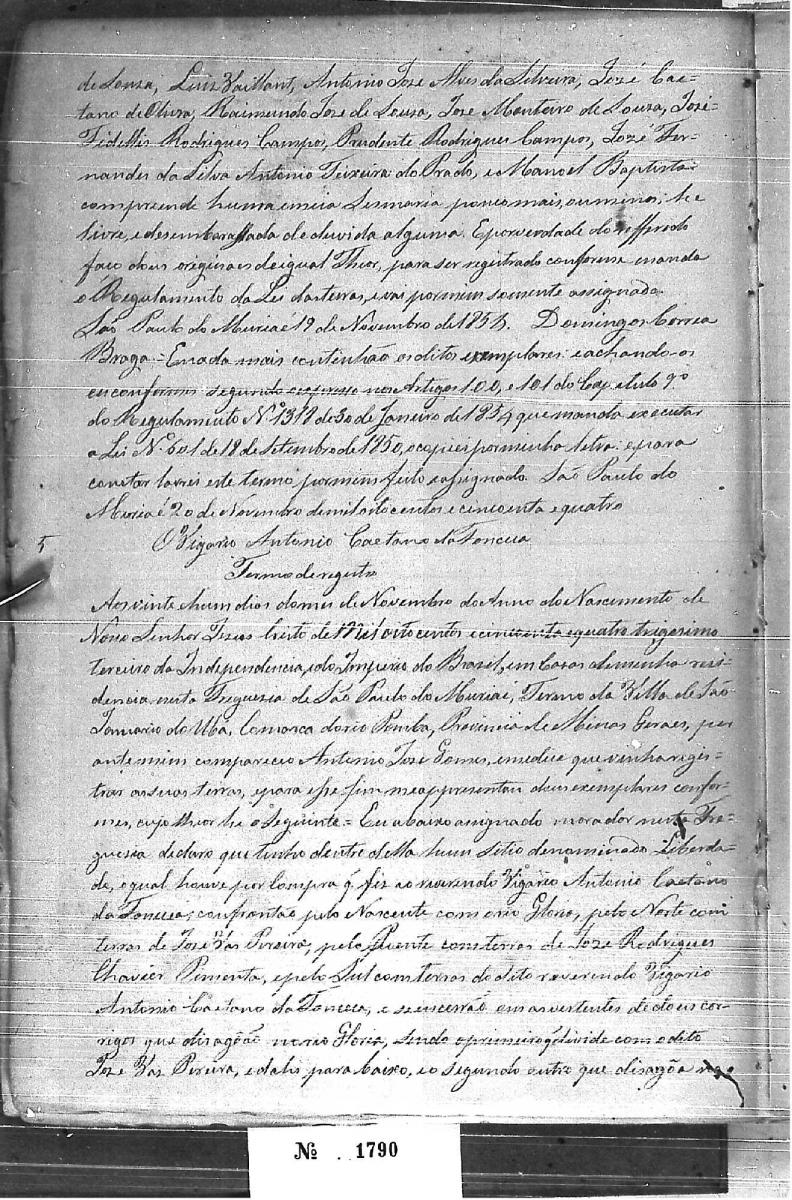 de Souza, Luis Vaillant, Antonio José Alves da Silveira, José Cae-
tano de Olivra, Raimundo José de Souza, José Monteiro de Souza, José
Fidellis Rodrigues Campos, Prudente Rodrigues Campos, José Fer-
nandes da Silva Antonio Teixeira do Prado, e Manoel Baptista
comprende huma e meia Sesmaria pouco mais, ou menos, he
livre, e desembarassada de duvida alguma. E por verdade do refferedo
faço dous originaes de igual Theor, para ser registrado conforme manda
o Regulamento da Lei das terras, e vai por mim somente assignado.
São Paulo do Muriaé 19 de Novembro de 1854. Domingos Correa
Braga = E nada mais continhão os ditos exemplares: e achando-os
em conformes segundo nos Artigos 100, e 101 do Capitulo 9º
do Regulamento Nº 1318 de 30 de Janeiro de 1854 que manda executar
a Lei Nº 601 de 18 de Setembro de 1850, o copiei por minha letra: e para
constar lavrei este termo por mim feito e assignado. São Paulo do
Muriaé 20 de Novembro de mil oito centos e cincoenta e quatro
O Vigario Antonio Caetano da Fonceca
Termo de registro
Aos vinte e hum dias do mes de Novembro do Anno do Nascimento de
Nosso Senhor Jezus Cristo de mil oito centos e cincoenta e quatro trigesimo
terceiro da Independencia, e do Imperio do Brazil, em Casas de minha resi-
dencia nesta Freguesia de São Paulo do Muriaé, Termo da Villa de São
Januario do Ubá, Comarca do rio Pomba, Provincia de Minas Geraes, per
ante mim compareceo Antonio José Gomes, e me dice que vinha regis-
trar as suas terras, e para esse fim me appresentou dous exemplares confor-
mes, cujo theor he o seguinte = Eu abaixo assignado morador nesta Fre-
guesia declaro que tenho dentro della hum sitio denominado Liberda-
de, o qual houve por Compra q. fiz ao reverendo Vigario Antonio Caetano
da Fonceca; confrontão pelo Nascente com o rio Gloria, pelo Norte com
terras de José Vas Pereira, pelo Puente com terras de José Rodrigues
Chavier Pimenta, e pelo Sul com terras do dito reverendo Vigario
Antonio Caetano da Fonceca, e se incerrão em as vertentes de dous cor-
regos que disagoão no rio Gloria, sendo o primeiro q. divide com o dito
José Vas Pereira, e dahi para baixo, e o segundo outro que disagôa no
Nº 1790